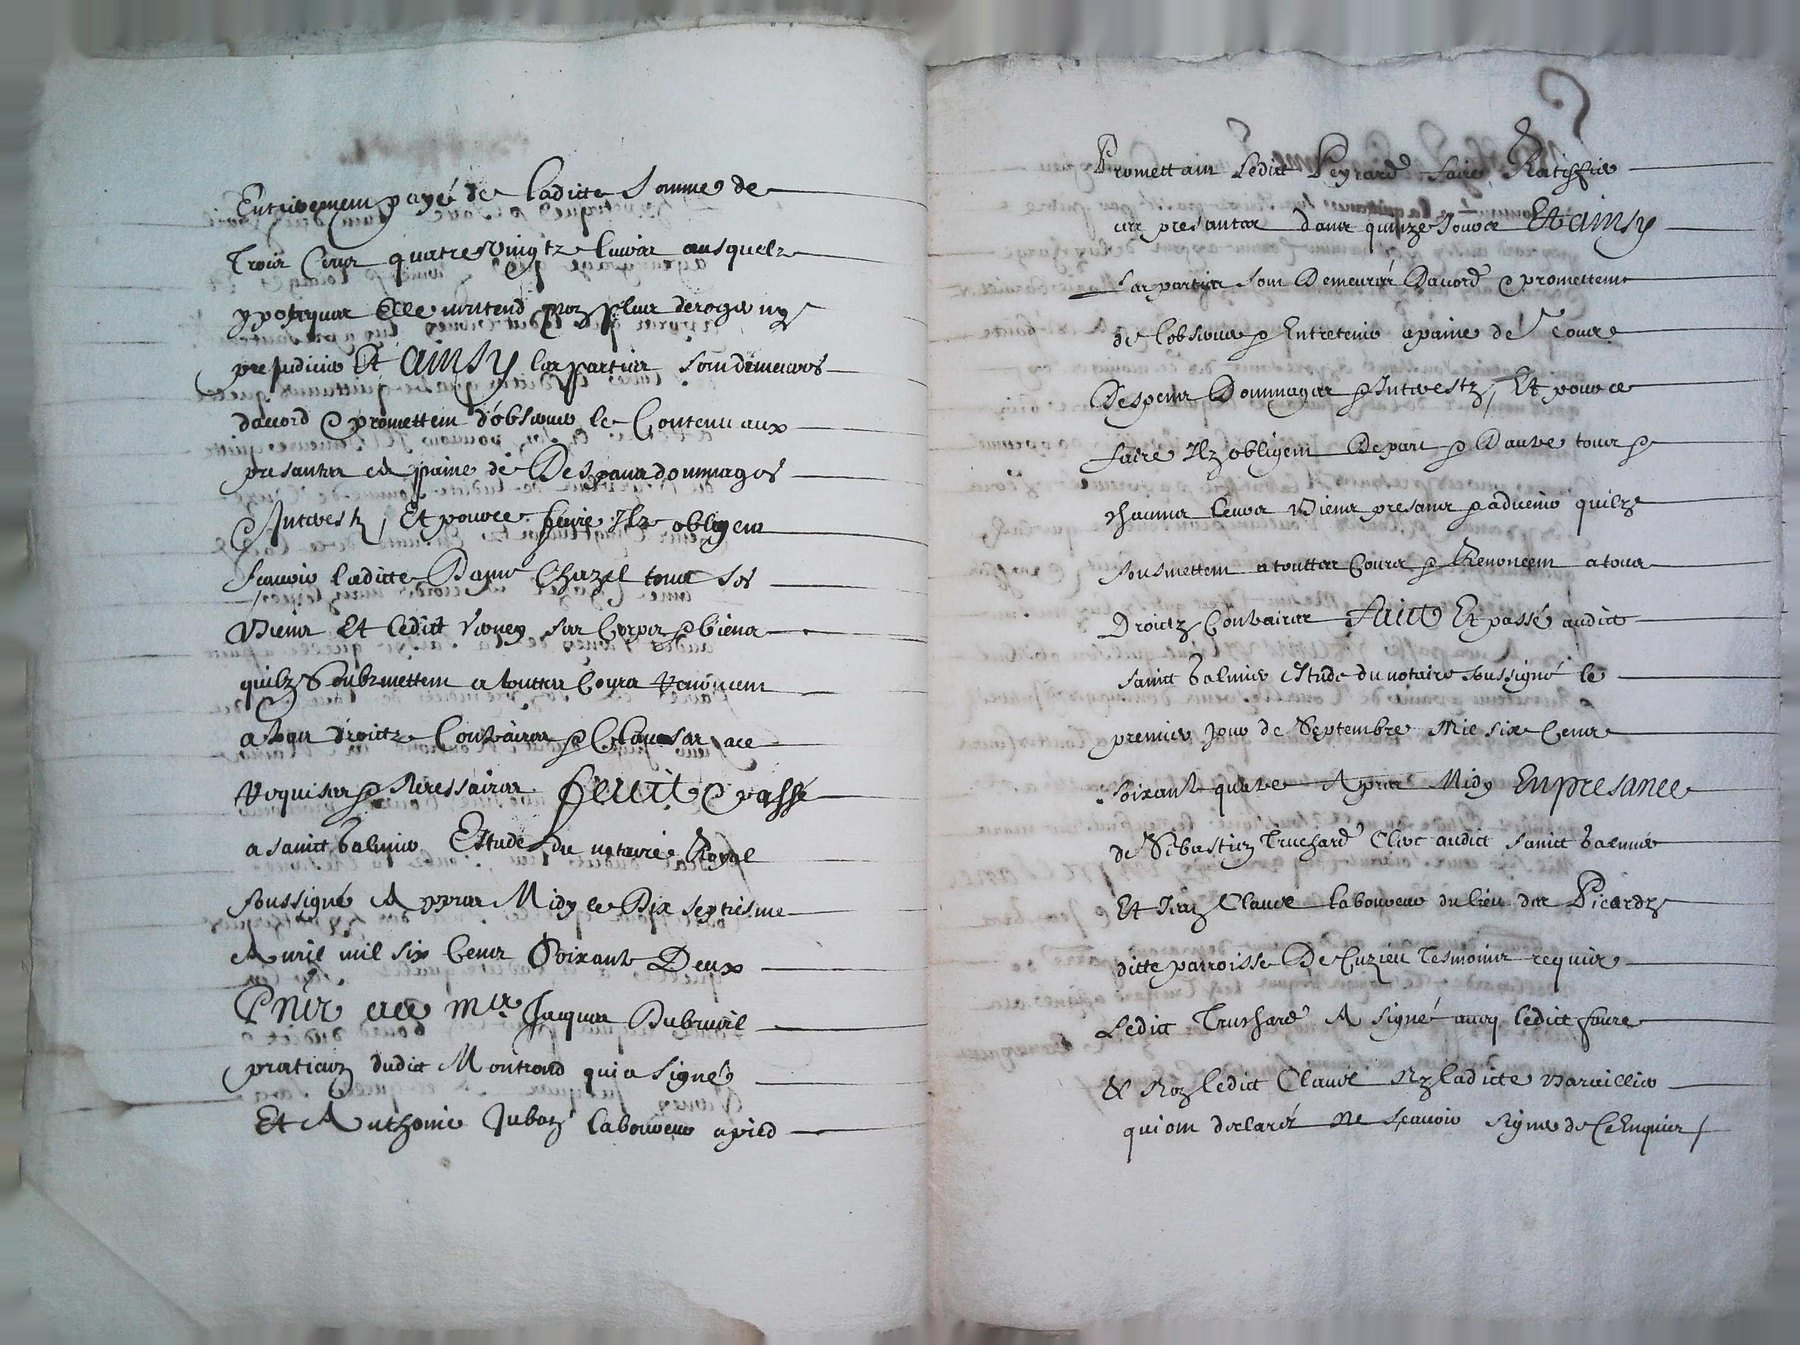 Entierement payé de ladicte somme de
Trois Cens quatre vingtz livres ausquelz
ypoteques Elle nentend poinct desroger ny
prejudicier Et ainsy les parties sont demeurés
daccord & promettent dobserver le Contenu aux
presantes en paine de Despans dommages
& Interestz, Et pour ce faire Ilz obligent
scavoir ladicte Dame Chazel tous ses
Biens Et ledict Vioney ses Corps & biens
quilz Soubzmettent a touttes Cours renoncent
a tous droictz Contraires & Clauses a ce
requises & Necessaires Faict & passé
a sainct Galmier Estude du notaire Royal
soussigné Apres Midy le Dix septiesme
Avril mil six Cens Soixante Deux
Pnts a ce Mes Jacques Dubrueil
praticien dudict Montrond qui a signé
Et Anthoine Juban laboureur a pied
Promettant Ledict Peyrard faire Ratiffier
ces presantes dans quinze Jours Et ainsy
Les parties sont Demeurés Daccord & promettent
de lobserver & Entretenir a paine de Tous
Despens Dommages & Interestz, Et pour ce
faire Ilz obligent De part & Dautre tous &
chacuns leurs Biens presans & advenir quilz
sousmettent a touttes Cours & Renoncent a tous
Droictz Contraires Faict Et passé audict
sainct Galmier Estude du notaire soussigné le
premier Jour de Septembre Mil six Cens
soixante quatre Apres Midy En presance
de Sebastien Truchard Clerc audict Sainct Galmier
Et Jean Claude laboureur du lieu des Picardz
ditte parroisse De Cuzieu Tesmoins requis
Ledict Truchard A signé avecq ledict faure
& Non ledict Claude Ny ladicte
qui ont declarés Ne scavoir signer de Ce Enquis /